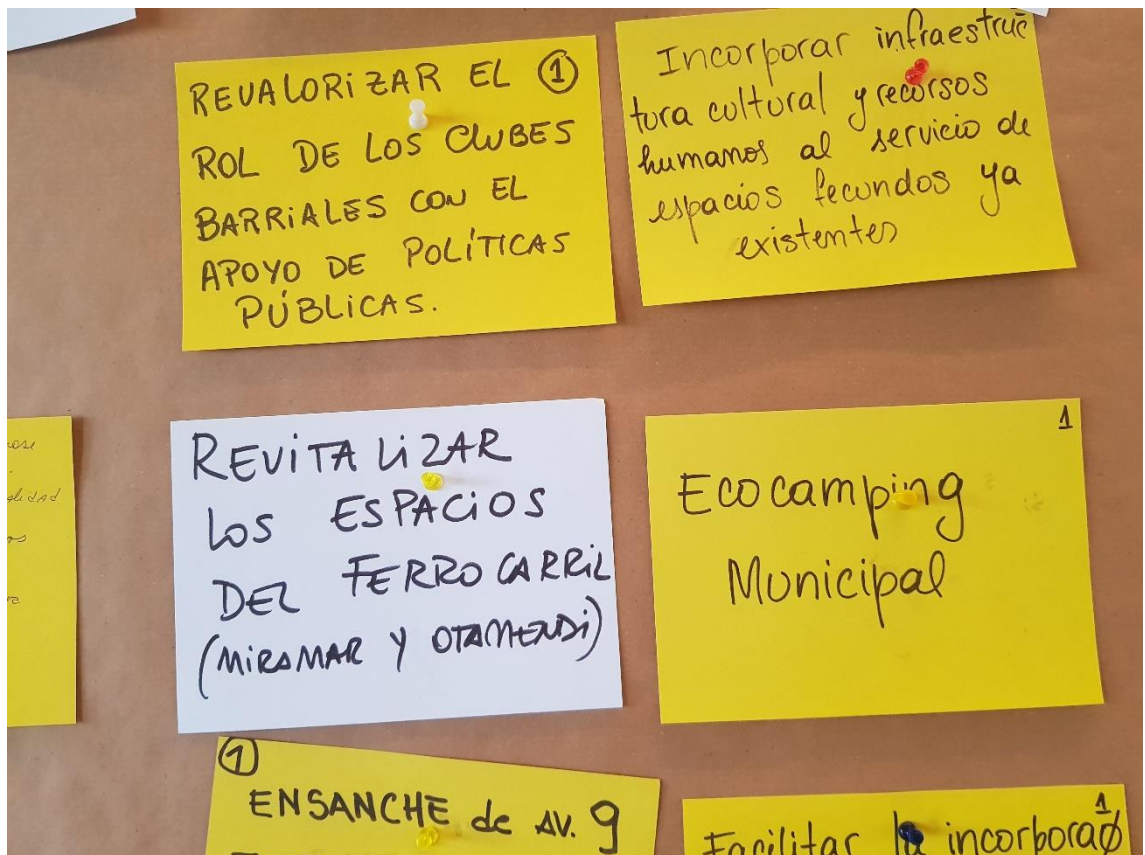 REVALORIZAR EL ①
ROL DE LOS CLUBES
BARRIALES CON EL
APOYO DE POLÍTICAS
PÚBLICAS.
Incorporar infraestruc
tura cultural y recursos
humanos al servicio de
espacios fecundos ya
existentes
REVITALIZAR
LOS ESPACIOS
DEL FERROCARRIL
(MIRAMAR Y OTAMENDI)
1
Ecocamping
Municipal
①
ENSANCHE de AV. 9
1
Facilitar la